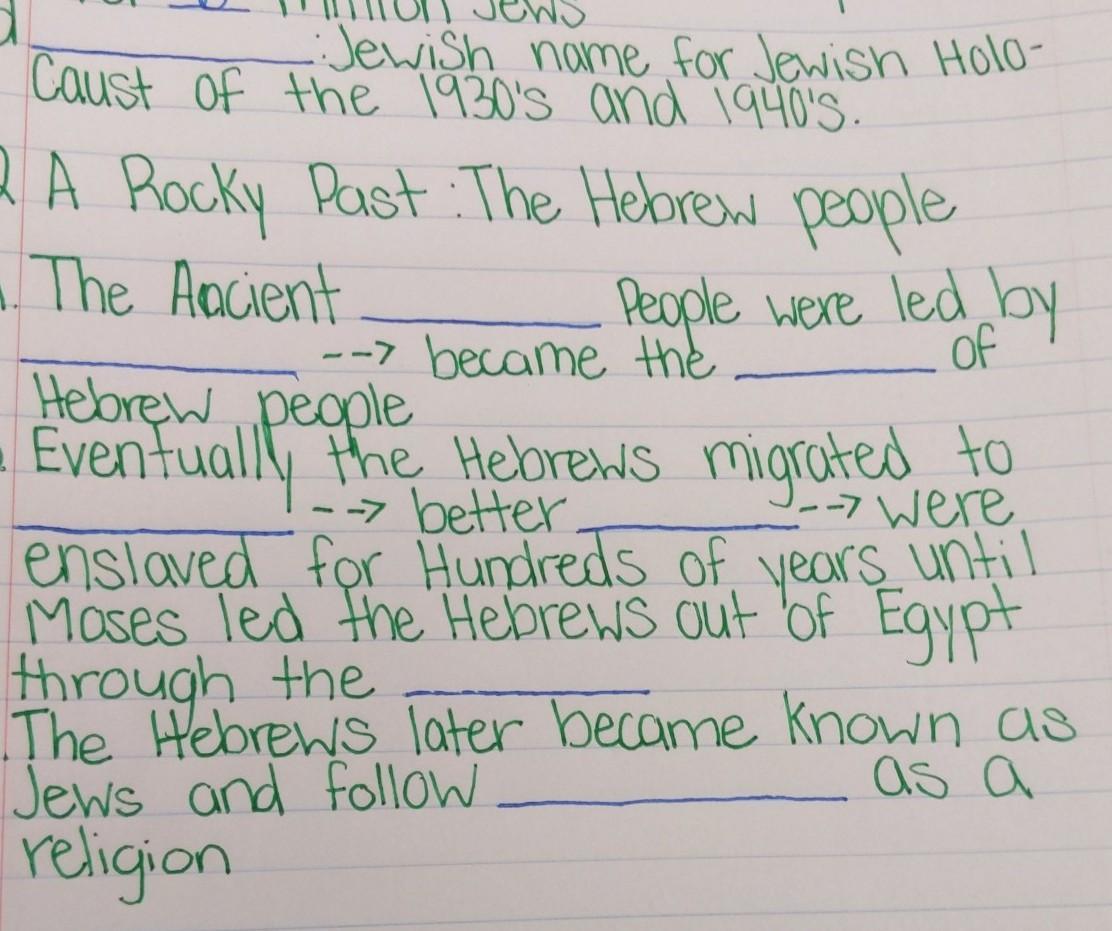 6 million Jews
____________: Jewish name for Jewish Holo-
caust of the 1930's and 1940's.
A Rocky Past: The Hebrew people
1. The Ancient __________ People were led by
____________ --> became the _________ of
Hebrew people
Eventually the Hebrews migrated to
____________ --> better __________ --> were
enslaved for Hundreds of years until
Moses led the Hebrews out of Egypt
through the __________
The Hebrews later became known as
Jews and follow _______________ as a
religion